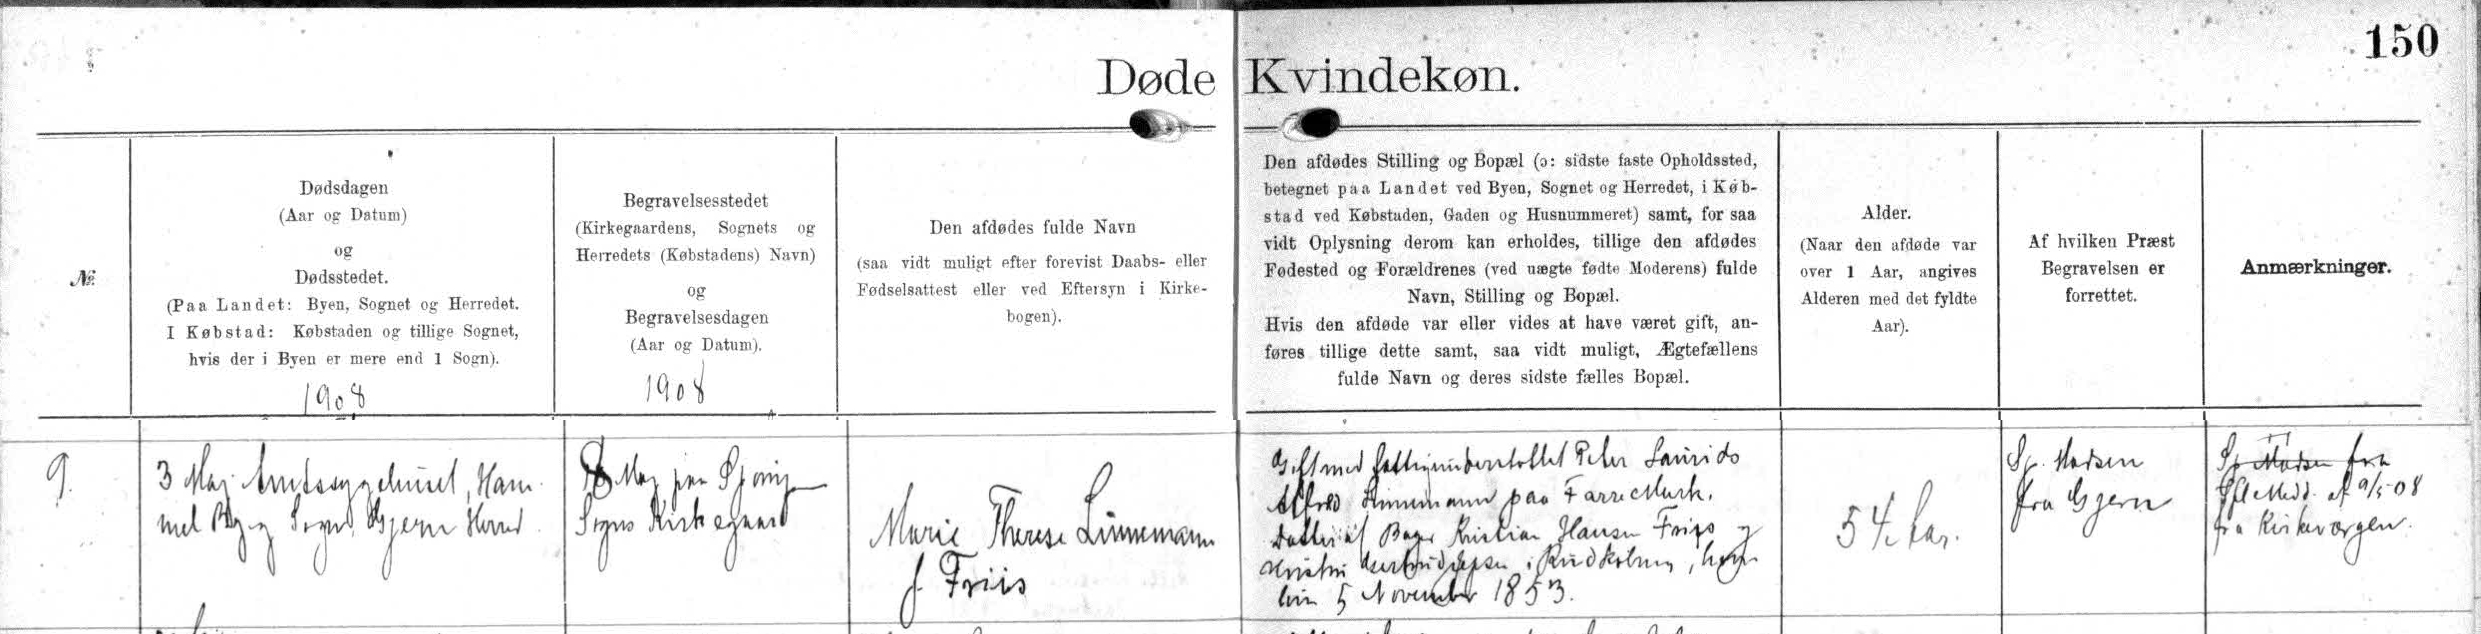 150
Døde Kvindekøn.
№
Dødsdagen
(Aar og Datum)
og
Dødsstedet.
(Paa Landet: Byen, Sognet og Herredet.
I Købstad: Købstaden og tillige Sognet,
hvis der i Byen er mere end 1 Sogn).
1908
Begravelsesstedet
(Kirkegaardens, Sognets og
Herredets (Købstadens) Navn)
og
Begravelsesdagen
(Aar og Datum).
1908
Den afdødes fulde Navn
(saa vidt muligt efter forevist Daabs- eller
Fødselsattest eller ved Eftersyn i Kirke-
bogen).
Den afdødes Stilling og Bopæl (ɔ: sidste faste Opholdssted,
betegnet paa Landet ved Byen, Sognet og Herredet, i Køb-
stad ved Købstaden, Gaden og Husnummeret) samt, for saa
vidt Oplysning derom kan erholdes, tillige den afdødes
Fødested og Forældrenes (ved uægte fødte Moderens) fulde
Navn, Stilling og Bopæl.
Hvis den afdøde var eller vides at have været gift, an-
føres tillige dette samt, saa vidt muligt, Ægtefællens
fulde Navn og deres sidste fælles Bopæl.
Alder.
(Naar den afdøde var
over 1 Aar, angives
Alderen med det fyldte
Aar).
Af hvilken Præst
Begravelsen er
forrettet.
Anmærkninger.
9.
3 Maj Amtssygehuset, Ham-
mel By og Sogn, Gjern Herred
Maj paa
Sogns Kirkegaard
Marie Therese Linnemann
f. Friis
Gift med Peter Laurids
Alfred Linnemann paa Farre Mark.
Datter af Kristian Hansen Friis og
i Rudkøbing,
5 November 1853.
54 Aar.
Sp. Madsen
fra Gjern
Sp. Madsen fra
Medd. af 9/5 08
fra Kirkeværgen.